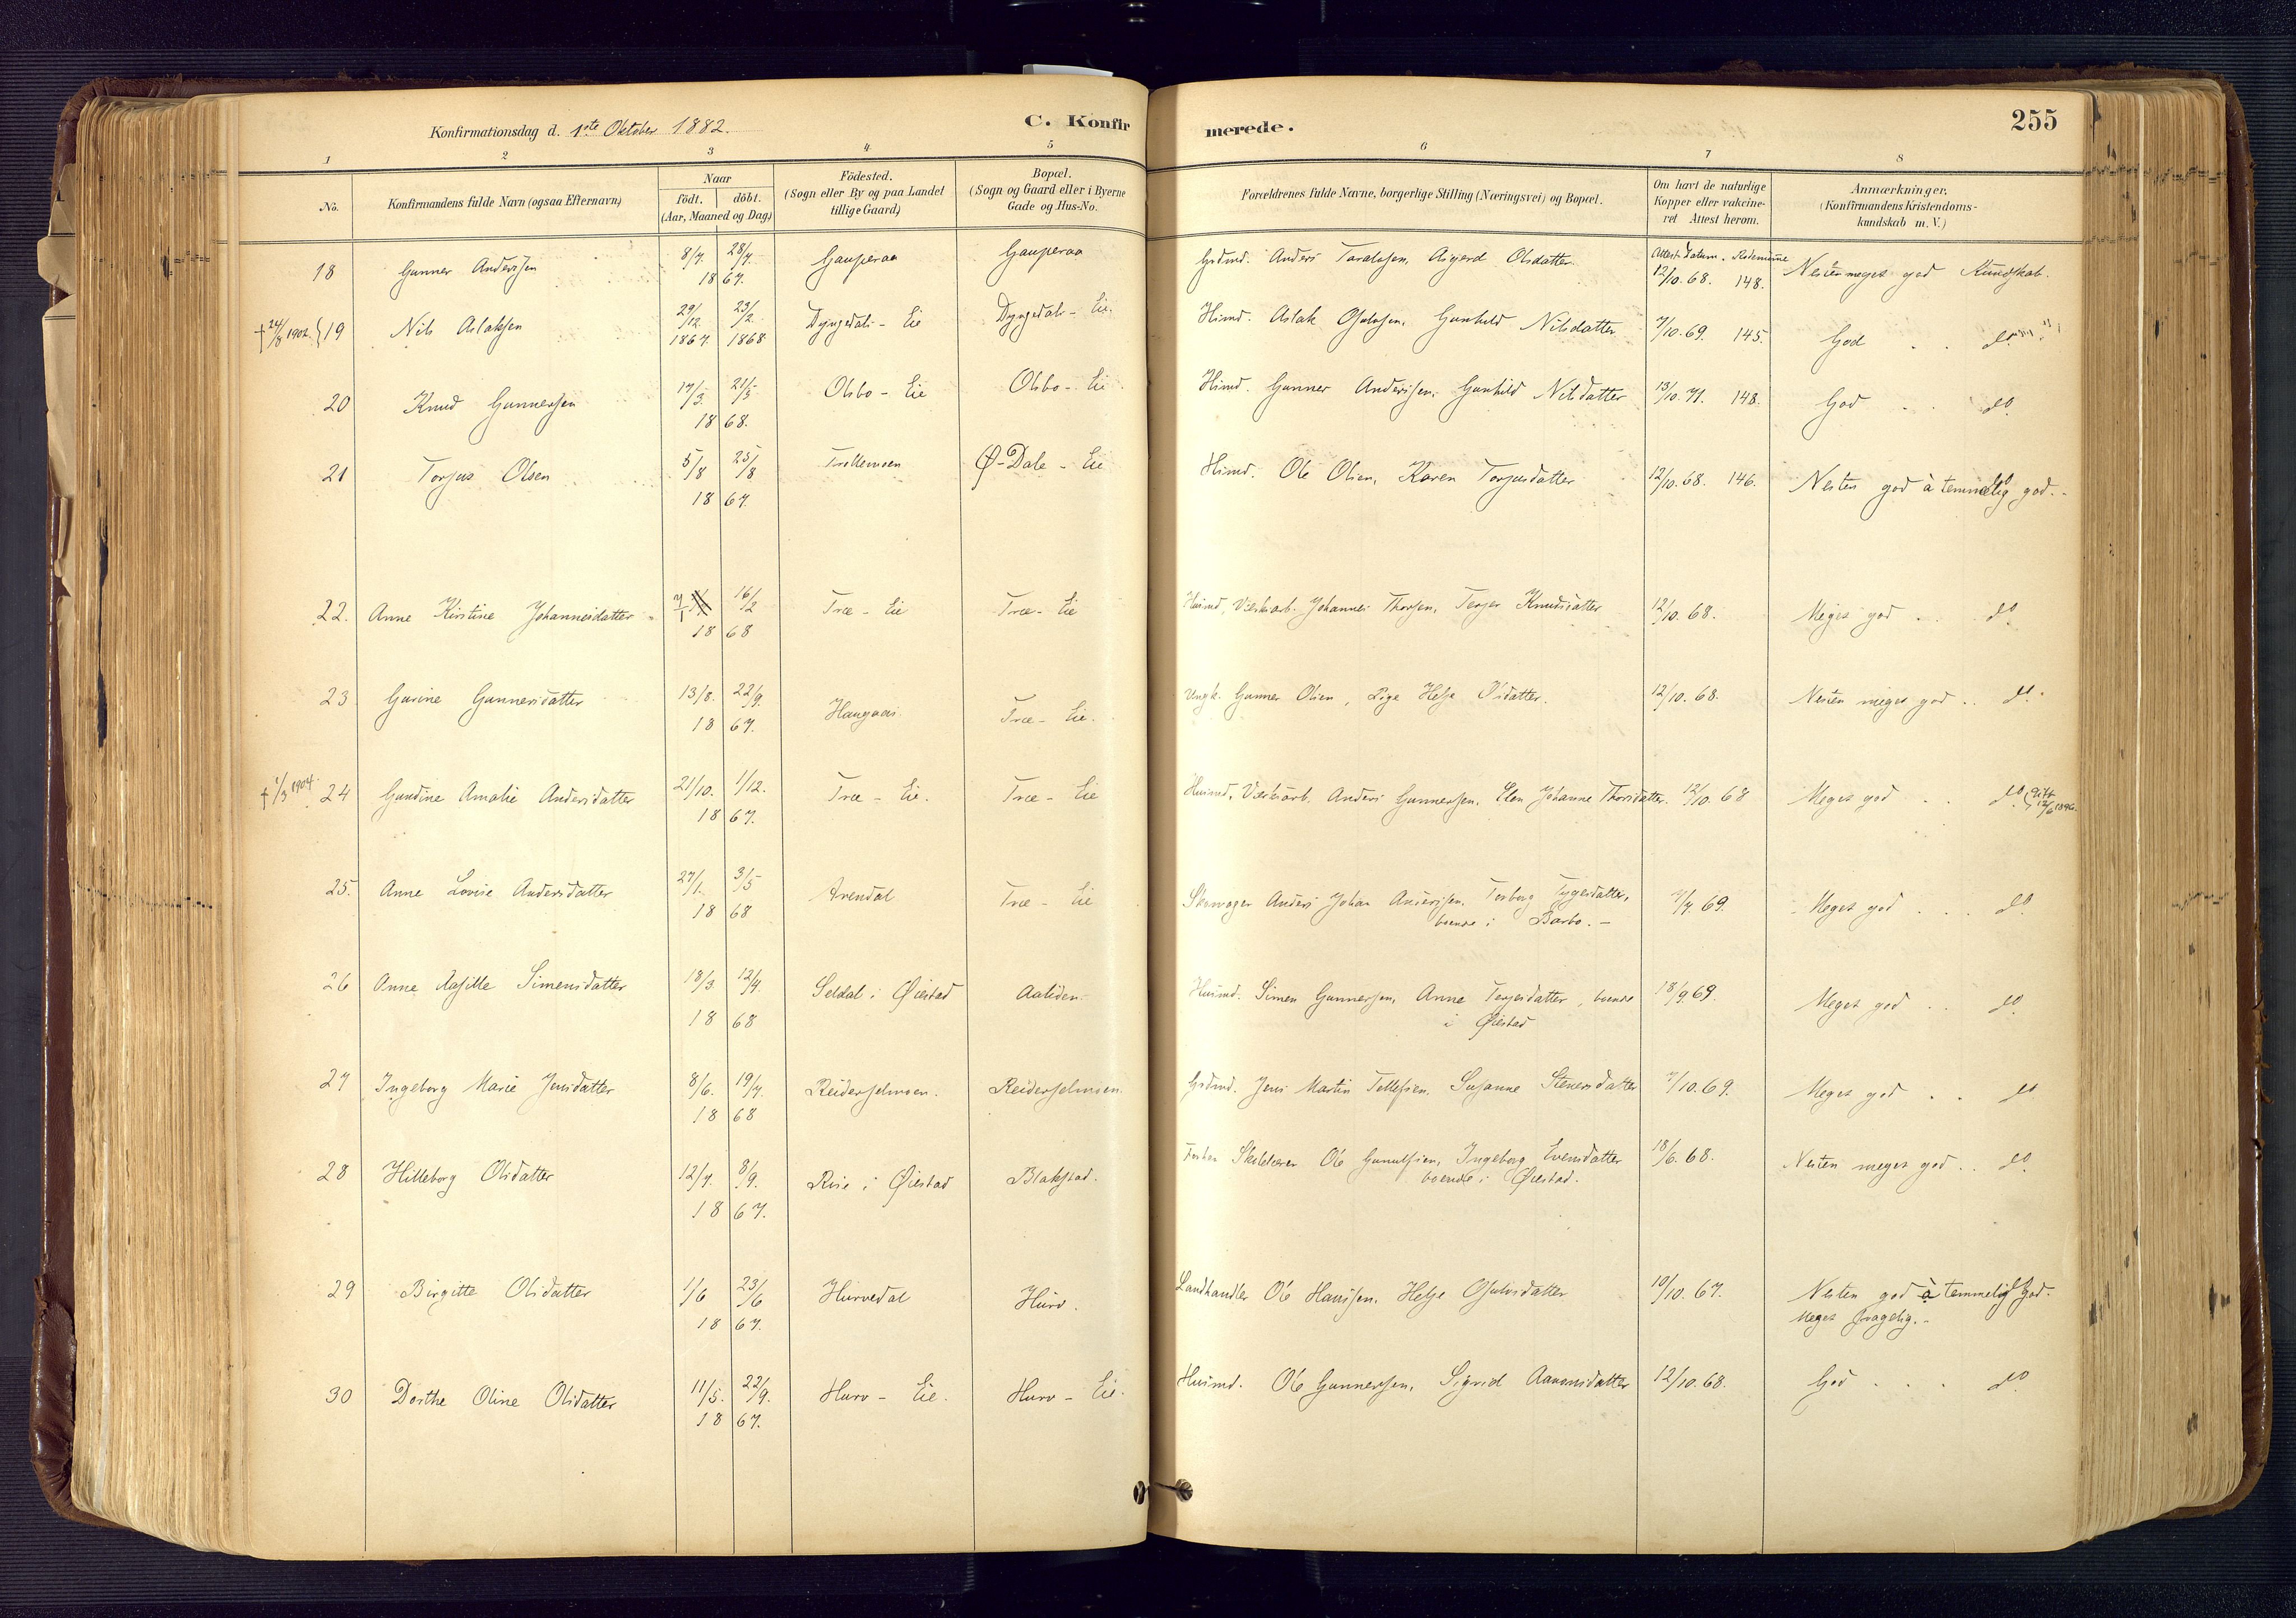 Konfirmationsdag d. 1ste Oktober 1882.
C. Konfirmerede.
255
1 2 3 4 5 6 7 8
No.
Konfirmandens fulde Navn (ogsaa Efternavn)
Naar
födt. döbt.
(Aar, Maaned og Dag)
Födested.
(Sogn eller By og paa Landet
tillige Gaard)
Bopæl.
(Sogn og Gaard eller i Byerne
Gade og Hus-No.
Forældrenes fulde Navne, borgerlige Stilling (Næringsvei) og Bopæl.
Om havt de naturlige
Kopper eller vakcine-
ret Attest herom.
Anmærkninger.
(Konfirmandens Kristendoms-
kundskab m. V.)
Attest Datum.
18 Gunner Anderssen 8/7. 28/7. 1867. Gauperaa Gauperaa Grdmd. Anders Taralssen, Asgjerd Olsdatter. 12/10.68. 148. Nesten meget god Kundskab.
† 24/8 1902. 19 Nils Aslaksen 29/12 1867. 23/2. 1868 Dyngedals-Eie Dyngedals-Eie. Husmd. Aslak Osulvsen, Gunhild Nilsdatter 7/10.69. 145. God . . do.
20 Knud Gunnersen 17/3. 21/5 1868. Olsbo-Eie Olsbo-Eie Husmd. Gunner Anderssen, Gunhild Nilsdatter 13/10.71. 148. God . . do.
21 Torjus Olsen 5/8 25/8 1867. Trollemoen Ø-Dale-Eie Husmd. Ole Olsen, Karen Torjusdatter 12/10.68. 146. Nesten god à temmelig god. do
22. Anne Kirstine Johannesdatter 7/1 16/2 1868 Træ-Eie Træ-Eie Husmd, Værksarb. Johannes Thorsen, Terjer Knudsdatter 12/10.68. Meget god . . do.
23 Gurine Gunnersdatter 13/8. 22/9. 1867. Haugaas Træ-Eie. Ungk. Gunner Olsen, Pige Helje Olsdatter. 12/10.68. Nesten meget god . . do.
† 1/3 1904. 24 Gundine Amalie Andersdatter 21/10. 1/12. 1867. Træ-Eie. Træ-Eie Husmd, Værksarb. Anders Gunnersen, Elen Johanne Thorsdatter. 12/10.68 Meget god . . do. Gift 12/6 1896.
25. Anne Lovise Andersdatter 27/1. 3/5 1868 Arendal Træ-Eie Anders Johan Anderssen, Torborg Tygesdatter,
boende i Barbo. - 7/7.69. Meget god . . . do.
26 Anne Simensdatter 18/3 12/4. 1868 Seldal i Øiestad Aaliden. Husmd. Simen Gunnersen, Anne Terjesdatter, boende
i Øiestad 18/9.69. Meget god . . do.
27 Ingeborg Marie Jensdatter 8/6. 19/7. 1868 Reiderselmoen. Reiderselmoen. Grdmd. Jens Martin Tellefsen, Susanne Stenersdatter 7/10.69. Meget god . . do
28 Hilleborg Olsdatter 12/7. 8/9. 1867. Rise i Øiestad Blakstad. Skolelærer Ole Gunulfsen, Ingeborg Evensdatter
boende i Øiestad. 18/6.68. Nesten meget god . . do.
29 Birgitte Olsdatter 1/6 23/6 1867. Hurvedal Hurv. Landhandler Ole Hanssen, Helje Osulvsdatter 10/10.67. Nesten god à temmelig god. do
Meget svagelig. -
30 Dorthe Oline Olsdatter 11/5. 22/9. 1867. Hurv-Eie. Hurv-Eie. Husmd. Ole Gunnersen, Sigrid Aanonsdatter 12/10.68. God . . . do.